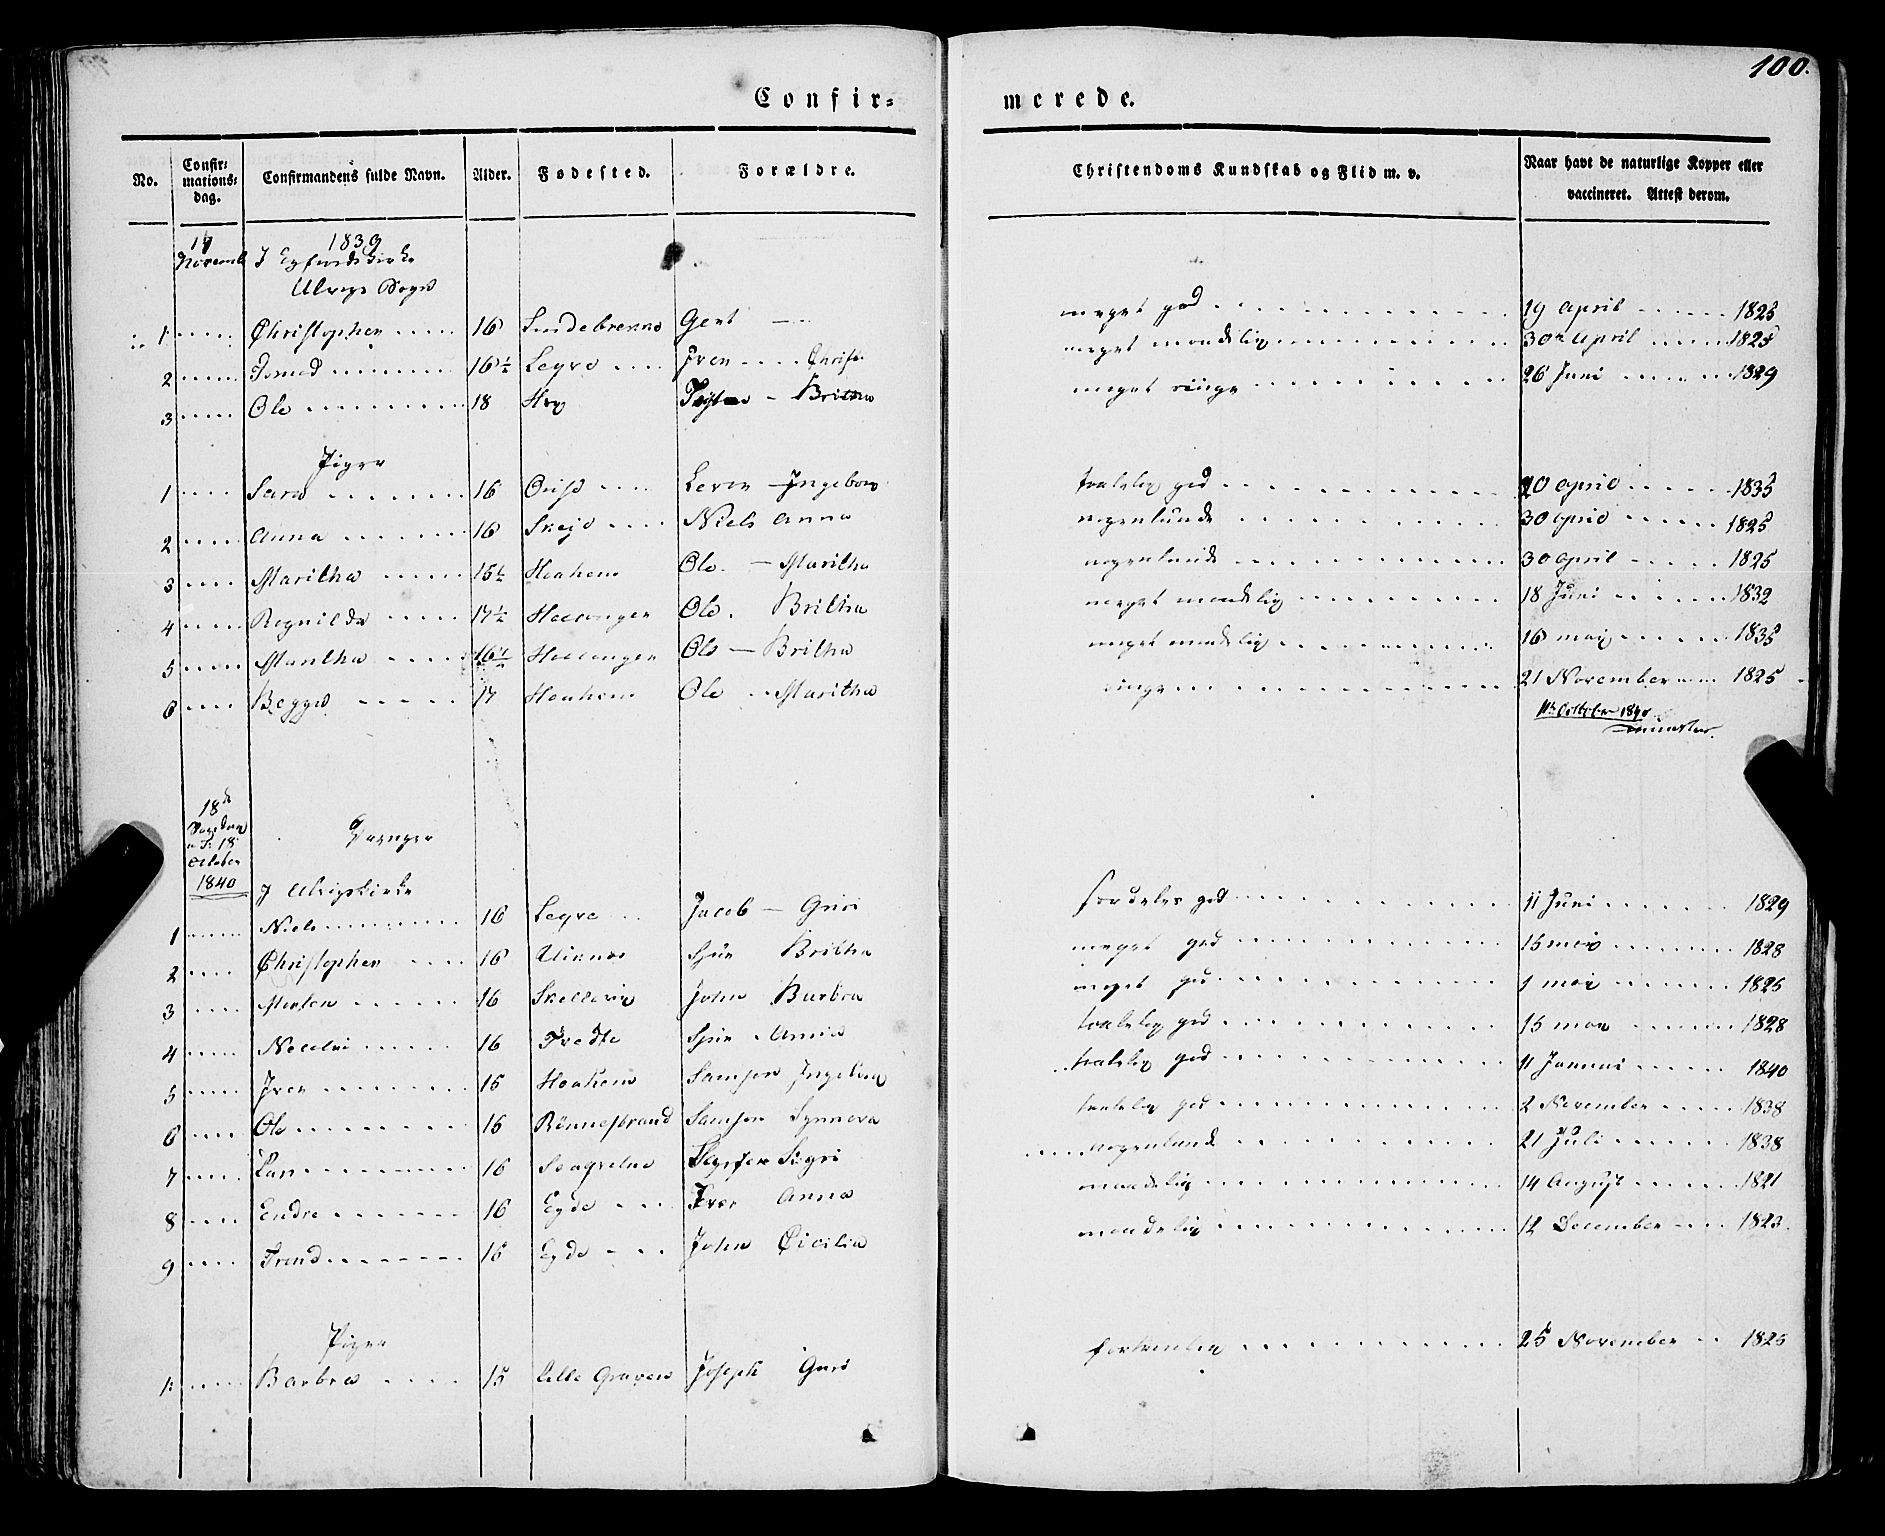 100.
Confir= merede.
No. Confir=mations=dag. Confirmandens fulde Navn. Alder. Fødested. Forældre. Christendoms Kundskab og Flid m. v. Naar havt de naturlige Kopper eller vaccineret. Attest derom.
17 1839
Novemb I Kirke
Ulvigs Sogn
1 Christopher 16 Gert meget god 19 April 1825
2 16½ Legre Iver meget maadelig 30te April 1825
3 Ole 18 Britha meget ringe 26 Juni 1829
Piger
1 Sara 16 Ingebor taalelig god April 1835
2 Anna 16 Niels Anna nogenlunde 30 April 1825
3 Maritha 15½ Haaheim Ole Maritha nogenlunde 30 April 1825
4 Regnilda 17½ Hallanger Ole Britha meget maadelig 18 Juni 1832
5 Maritha 16½ Hallanger Ole Britha meget maadelig 16 Mai 1835
6 17 Haaheim Ole Maritha ringe 21 November 1825
11te October 1840
18de
October
1840
Drenge
I Ulvigs Kirke
1 Niels 16 Legre Jacob Guri særdeles god 11 Juni 1829
2 Christopher 16 Sjur Britha meget god 15 Mai 1828
3 Morten 16 John Barbra meget god 1 Mai 1825
4 Nicolai 16 Tvedte Sjur Anna taalelig god 15 Mai 1828
5 Iver 15 Haaheim Samson Ingeborg taalelig god 11 Januari 1840
6 Ole 15 Rønnestrand Samson Synneva taalelig god 2 November 1838
7 Lars 16 Sigri nogenlunde 21 Juli 1838
8 Endre 16 Eyde Iver Anna maadelig 14 August 1821
9 Trond 15 Eyde John Cicilia maadelig 12 December 1823
Piger
1 Barbra 15 Lille Graven Joseph Guri fortrinlig 25 November 1825